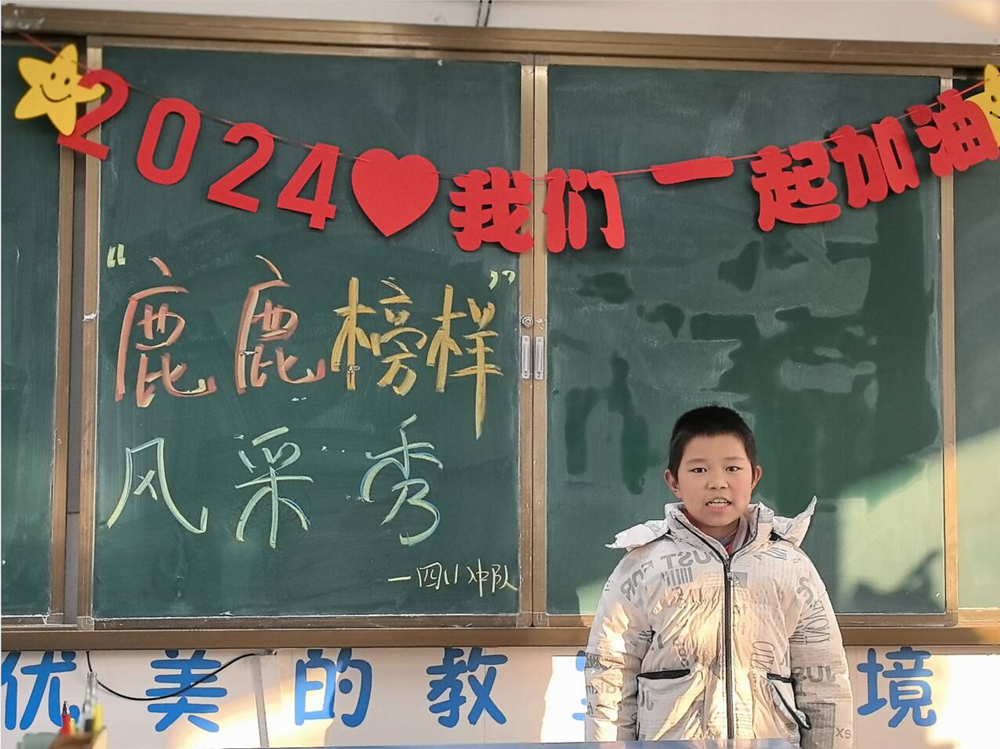 2024 我们一起加油
“鹿鹿榜样”
风采秀
—四(1)中队
优美的教室 境